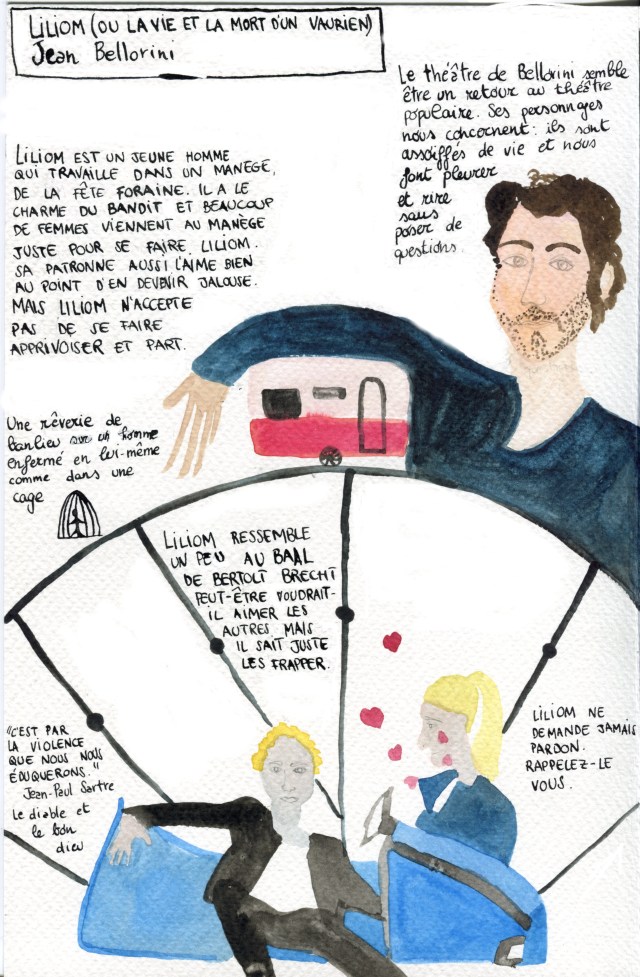 LILIOM (OU LA VIE ET LA MORT D'UN VAURIEN)
Jean Bellorini
Le théâtre de Bellorini semble
être un retour au théâtre
populaire. Ses personnages
nous concernent : ils sont
assoiffés de vie et nous
font pleurer
et rire
sans
poser de
questions.
LILIOM EST UN JEUNE HOMME
QUI TRAVAILLE DANS UN MANÈGE,
DE LA FÊTE FORAINE. IL A LE
CHARME DU BANDIT ET BEAUCOUP
DE FEMMES VIENNENT AU MANÈGE
JUSTE POUR SE FAIRE LILIOM.
SA PATRONNE AUSSI L'AIME BIEN
AU POINT D'EN DEVENIR JALOUSE.
MAIS LILIOM N'ACCEPTE
PAS DE SE FAIRE
APPRIVOISER ET PART.
Une rêverie de
banlieu sur un homme
enfermé en lui-même
comme dans une
cage
LILIOM RESSEMBLE
UN PEU AU BAAL
DE BERTOLT BRECHT
PEUT-ÊTRE VOUDRAIT-
IL AIMER LES
AUTRES MAIS
IL SAIT JUSTE
LES FRAPPER.
LILIOM NE
DEMANDE JAMAIS
PARDON.
RAPPELEZ-LE
VOUS.
"C'EST PAR
LA VIOLENCE
QUE NOUS NOUS
ÉDUQUERONS."
Jean-Paul Sartre
Le diable et
le bon
dieu